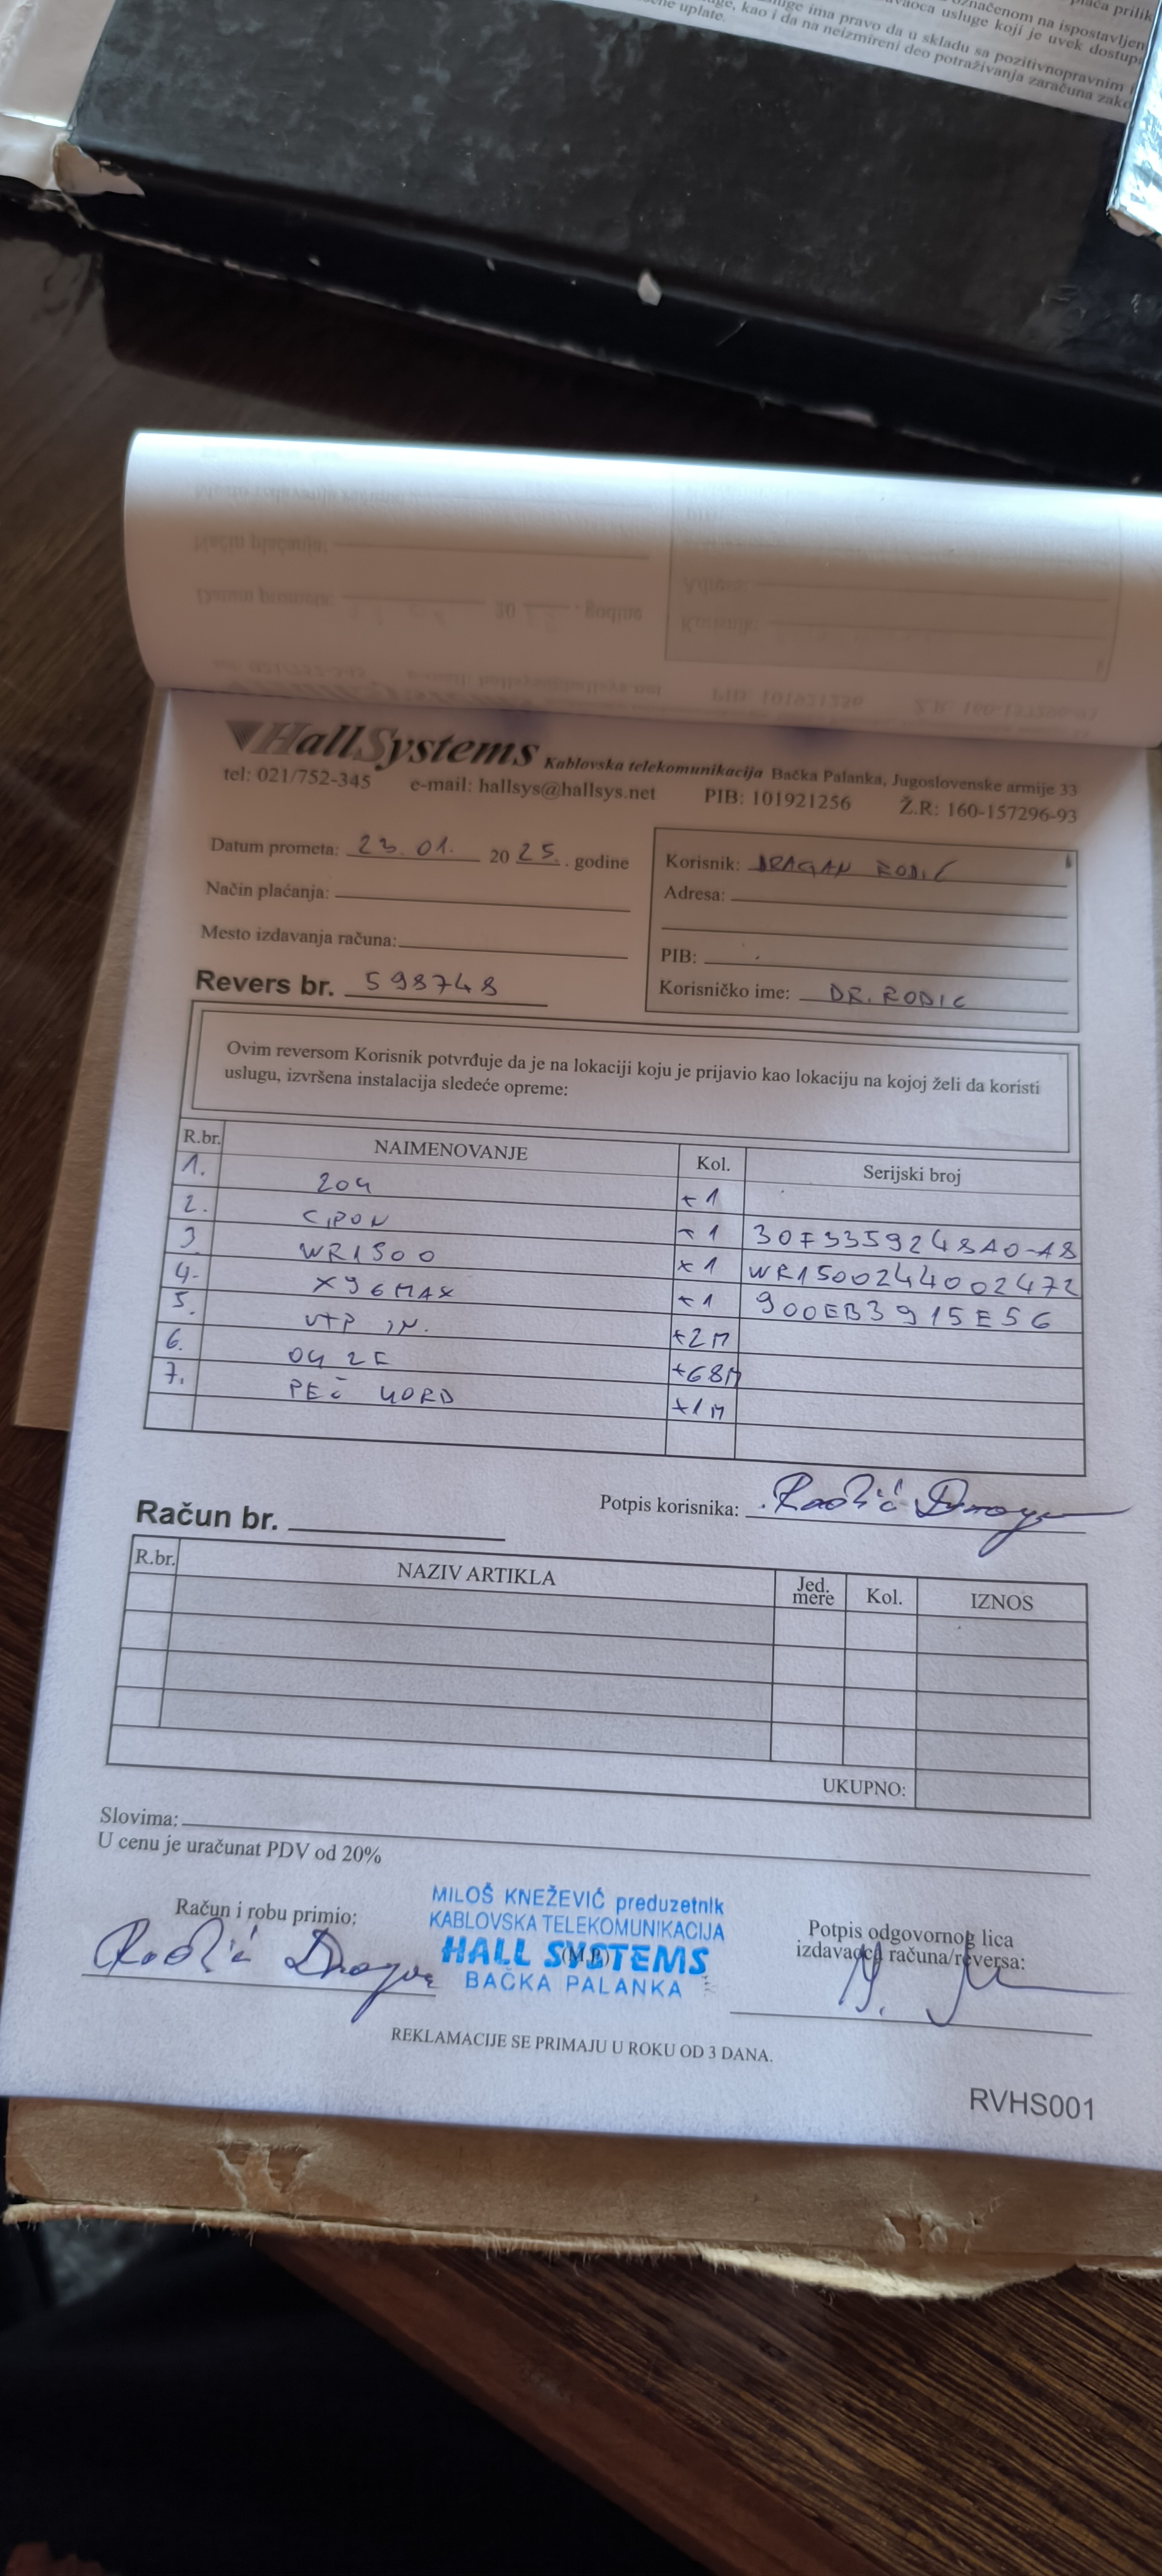 označenom na ispostavljen
usluge koji je uvek dostup
usluge ima pravo da u skladu sa pozitivnopravnim
uplate. kao i da na neizmireni deo potraživanja zaračuna zako
HallSystems Kablovska telekomunikacija Bačka Palanka, Jugoslovenske armije 33
tel: 021/752-345 e-mail: hallsys@hallsys.net PIB: 101921256 Ž.R: 160-157296-93
Datum prometa: 23.01. 2025. godine
Način plaćanja:
Mesto izdavanja računa:
Korisnik: DRAGAN RODIĆ
Adresa:
PIB:
Korisničko ime: DR.RODIC
Revers br. 598748
Ovim reversom Korisnik potvrđuje da je na lokaciji koju je prijavio kao lokaciju na kojoj želi da koristi
uslugu, izvršena instalacija sledeće opreme:
R.br. NAIMENOVANJE Kol. Serijski broj
1. 204 +1
2. +1
3. WR1500 +1 WR1500244002472
4. +1 900EB3915E56
5. UTP +2M
6. +68M
7. +1M
Potpis korisnika: Rodić Dragan
Račun br.
R.br. NAZIV ARTIKLA Jed. mere Kol. IZNOS
UKUPNO:
Slovima:
U cenu je uračunat PDV od 20%
Račun i robu primio:
Rodić Dragan
MILOŠ KNEŽEVIĆ preduzetnik
KABLOVSKA TELEKOMUNIKACIJA
HALL SYSTEMS
(M.P.)
BAČKA PALANKA
Potpis odgovornog lica
izdavaoca računa/reversa:
REKLAMACIJE SE PRIMAJU U ROKU OD 3 DANA.
RVHS001